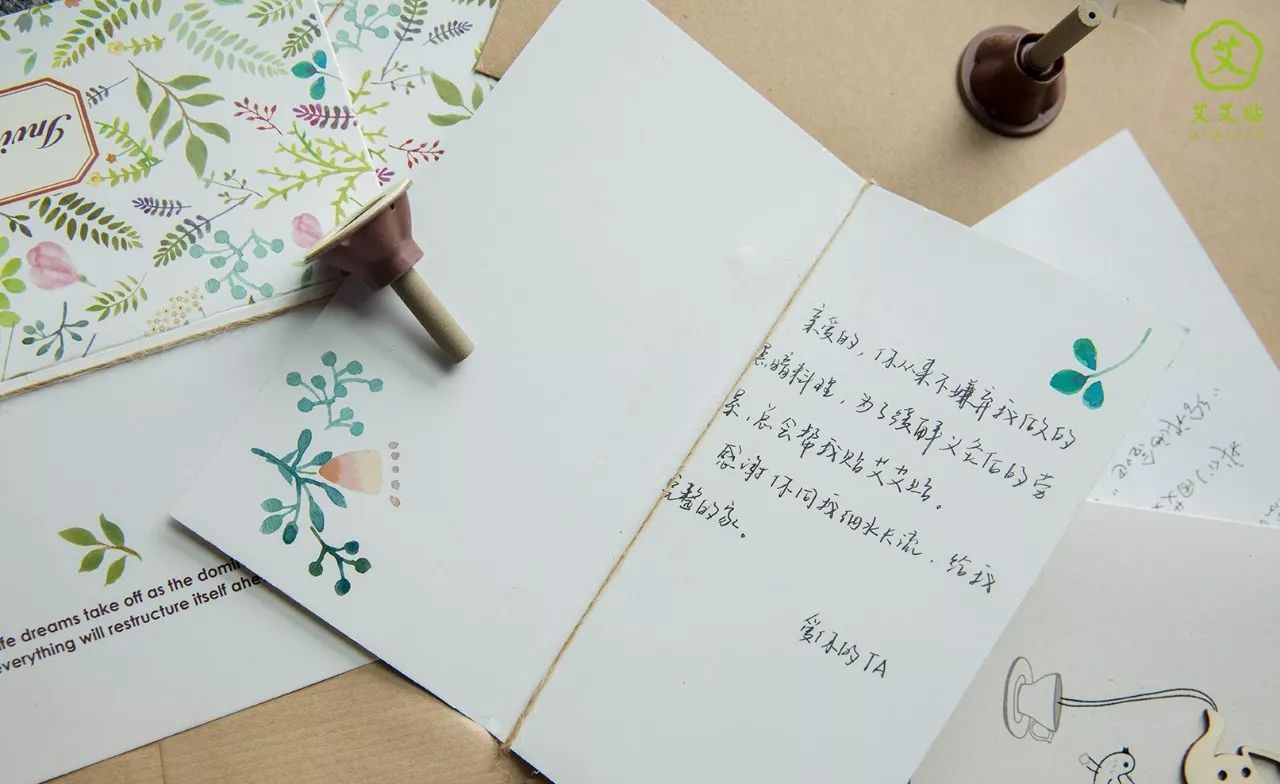 Invi
艾
艾艾贴
亲爱的，你从来不嫌弃我做的
黑暗料理，为了缓解义务后的劳
累，总会帮我贴艾艾贴。
感谢你同我细水长流，给我
完整的家。
爱你的TA
ife dreams take off as the domi
everything will restructure itself ahe